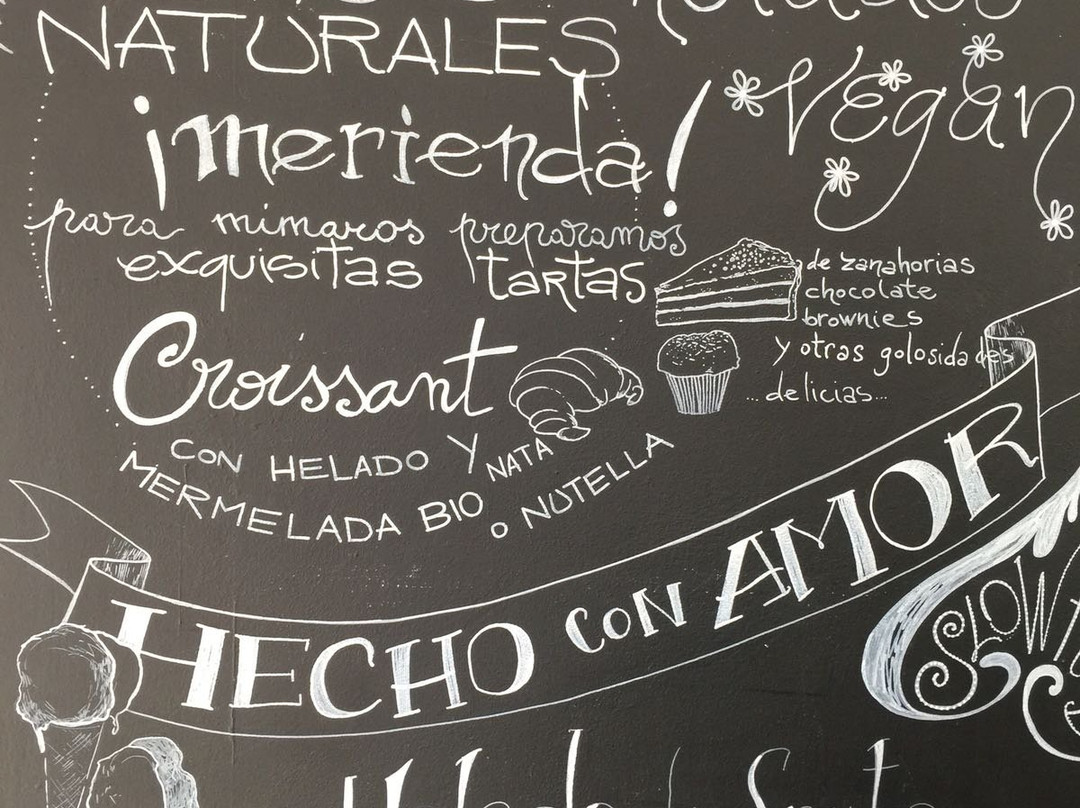 NATURALES
Vegan
¡merienda!
para mimaros preparamos
exquisitas tartas
de zanahorias
chocolate
brownies
y otras golosidades
...delicias...
Croissant
CON HELADO Y NATA
MERMELADA BIO o NUTELLA
HECHO CON AMOR
SLOW